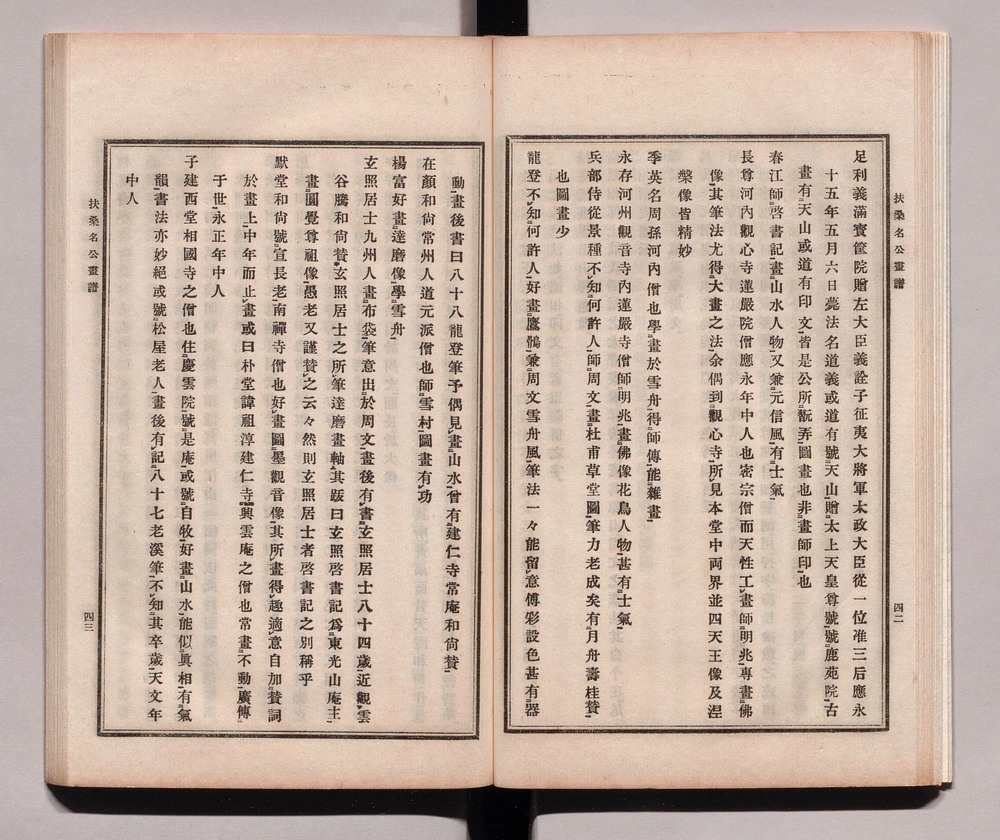 扶桑名公畫譜
四二
足利義滿寶筐院贈左大臣義詮子征夷大將軍太政大臣從一位准三后應永
十五年五月六日薨法名道義或道有號天山贈太上天皇尊號號鹿苑院古
畫有天山或道有印文皆是公所翫弄圖畫也非畫師印也
春江師啓書記畫山水人物又兼元信風有士氣
長尊河內觀心寺蓮嚴院僧應永年中人也密宗僧而天性工畫師明兆專畫佛
像其筆法尤得大畫之法余偶到觀心寺所見本堂中兩界並四天王像及涅
槃像皆精妙
季英名周孫河內僧也學畫於雪舟得師傳能雜畫
永存河州觀音寺內蓮嚴寺僧師明兆畫佛像花鳥人物甚有士氣
兵部侍從景種不知何許人師周文畫杜甫草堂圖筆力老成矣有月舟壽桂贊
也圖畫少
龍登不知何許人好畫鷹鶻兼周文雪舟風筆法一々能留意傅彩設色甚有器
動畫後書曰八十八龍登筆予偶見畫山水曾有建仁寺常庵和尙贊
在顏和尙常州人道元派僧也師雪村圖畫有功
楊富好畫達磨像學雪舟
玄照居士九州人畫布袋筆意出於周文畫後有書玄照居士八十四歲近觀雲
谷騰和尙贊玄照居士之所筆達磨畫軸其跋曰玄照啓書記爲東光山庵主
畫圓覺尊祖像愚老又謹贊之云々然則玄照居士者啓書記之別稱乎
默堂和尙號宣長老南禪寺僧也好畫圖墨觀音像其所畫得趣適意自加贊詞
於畫上中年而止畫或曰朴堂諱祖淳建仁寺興雲庵之僧也常畫不動廣傳
于世永正年中人
子建西堂相國寺之僧也住慶雲院號是庵或號自牧好畫山水能似眞相有氣
韻書法亦妙絕或號松屋老人畫後有記八十七老溪筆不知其卒歲天文年
中人
扶桑名公畫譜
四三